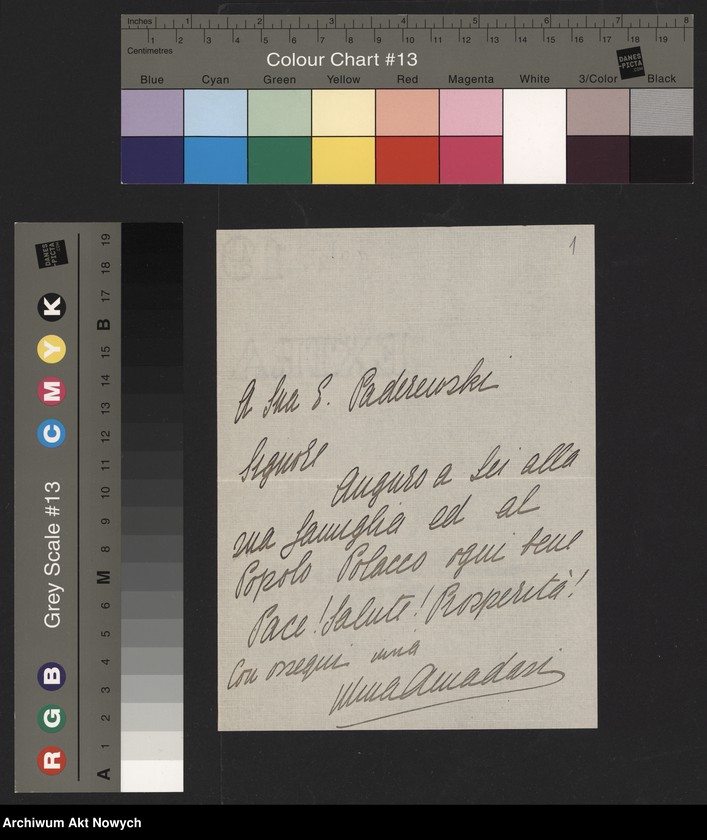 Inches 1 2 3 4 5 6 7 8
1 2 3 4 5 6 7 8 9 10 11 12 13 14 15 16 17 18 19
Centimetres
Colour Chart #13
DANES
-PICTA
.COM
Blue Cyan Green Yellow Red Magenta White 3/Color Black
Grey Scale #13
R G B C M Y K
DANES
-PICTA
.COM
A 1 2 3 4 5 6 M 8 9 10 11 12 13 14 15 B 17 18 19
1
A Sua E. Paderewski
Signore
Auguro a Lei alla
sua famiglia ed al
Popolo Polacco ogni bene
Pace! Salute! Prosperità!
Con ossequi
Amadasi
Archiwum Akt Nowych